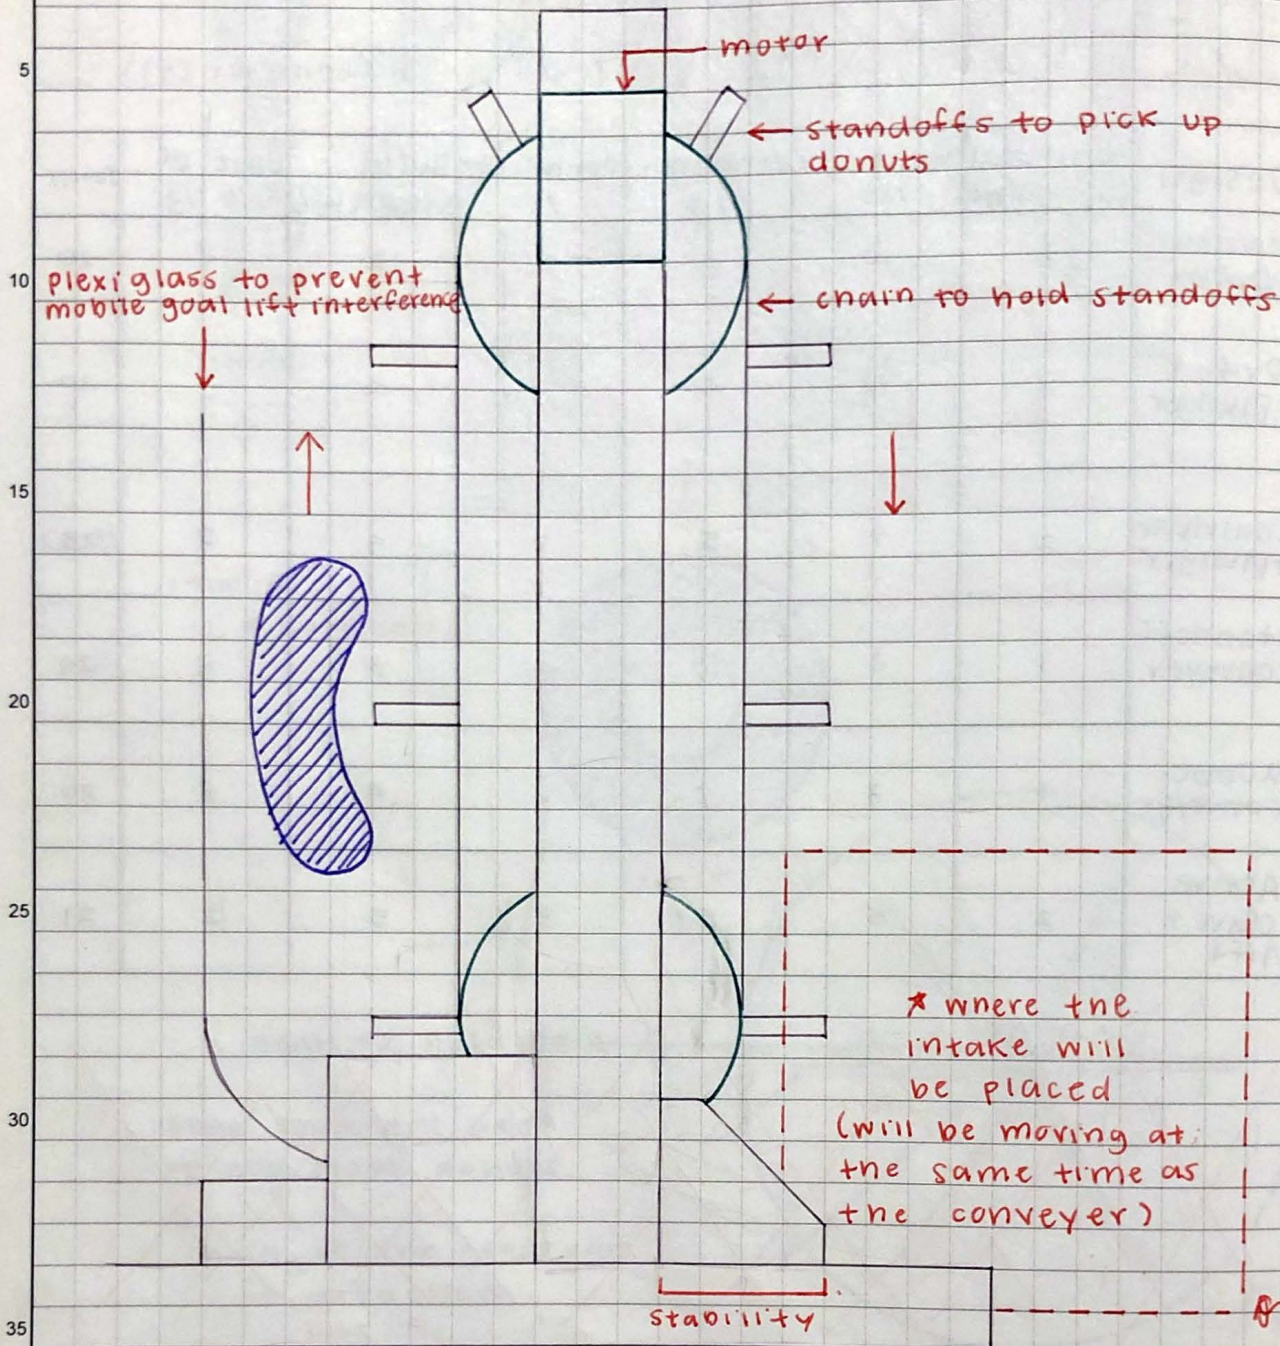 5
motor
standoffs to pick up
donuts
10
plexiglass to prevent
mobile goal lift interference
chain to hold standoffs
15
20
25
* where the
intake will
be placed
30
(will be moving at
the same time as
the conveyer)
stability
35